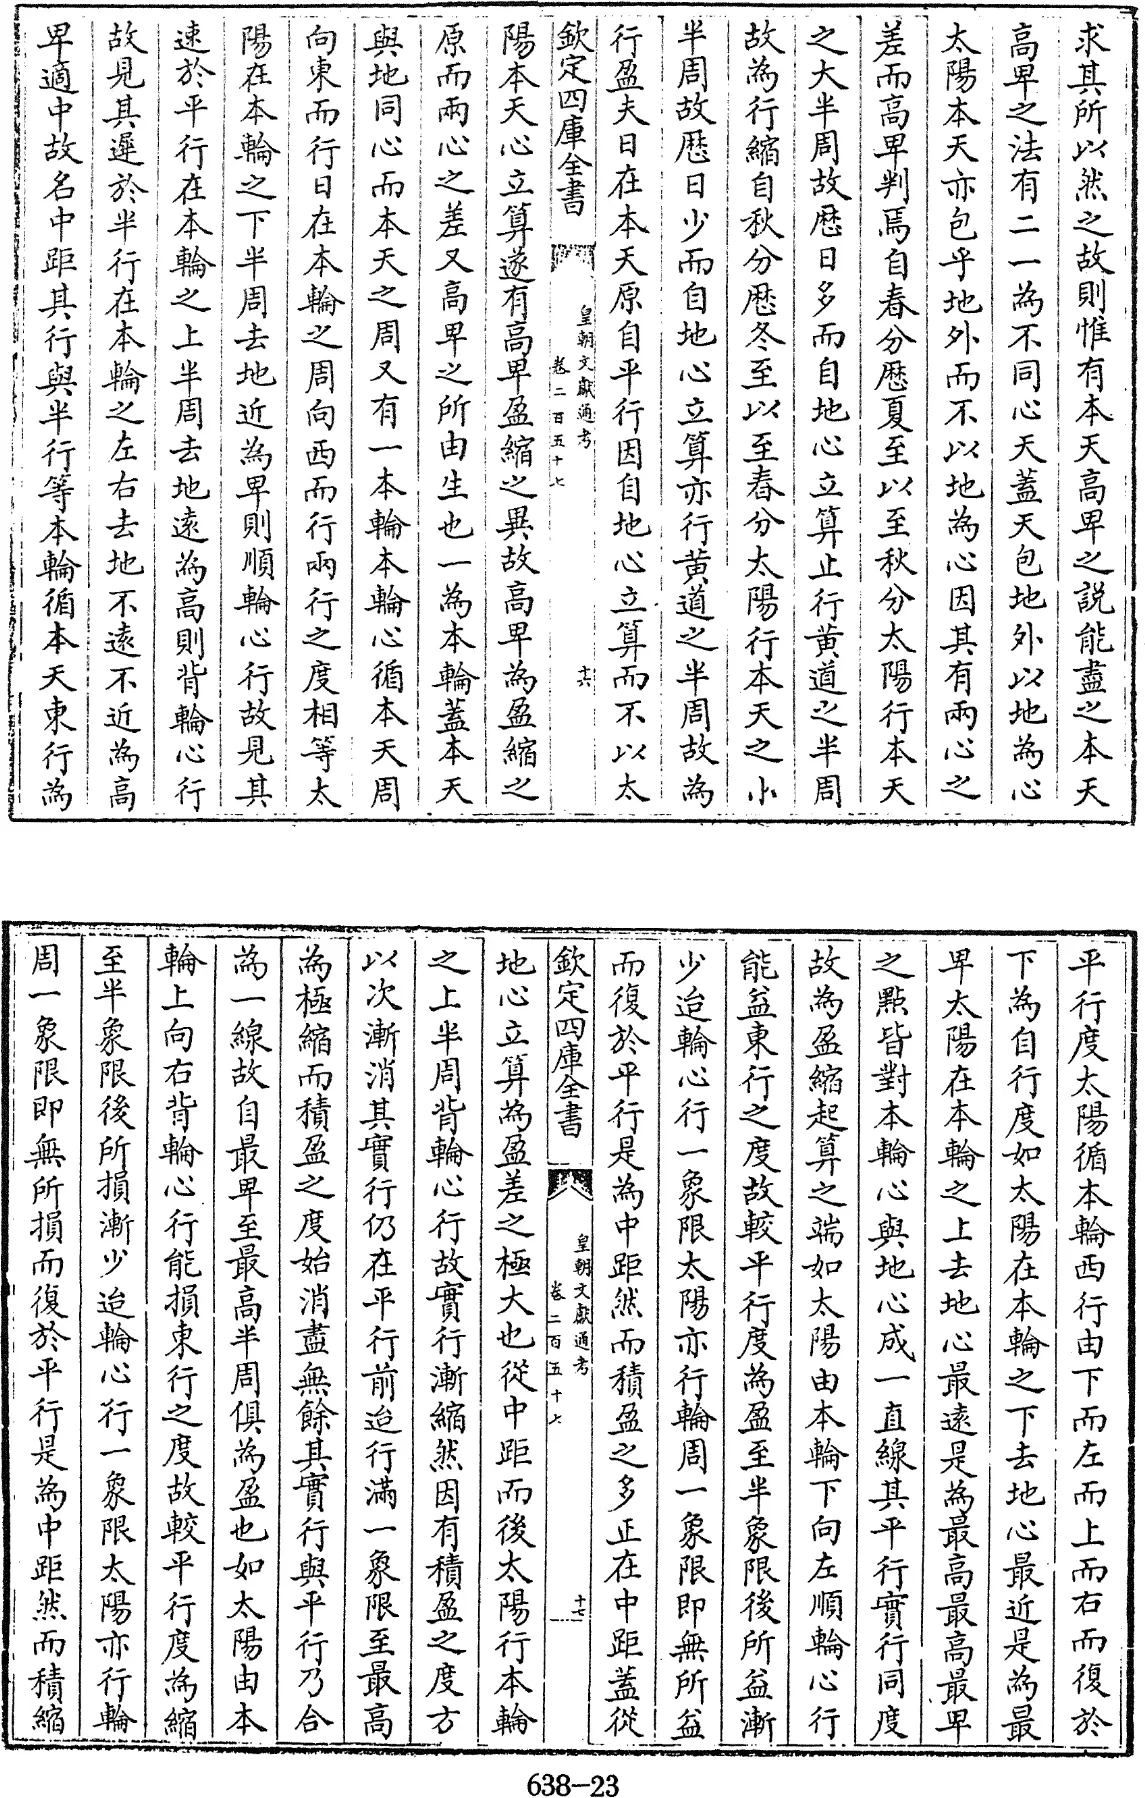 求其所以然之故則惟有本天高卑之説能盡之本天
高卑之法有二一為不同心天蓋天包地外以地為心
太陽本天亦包乎地外而不以地為心因其有兩心之
差而高卑判焉自春分歷夏至以至秋分太陽行本天
之大半周故歷日多而自地心立算止行黄道之半周
故為行縮自秋分歷冬至以至春分太陽行本天之小
半周故歷日少而自地心立算亦行黄道之半周故為
行盈夫日在本天原自平行因自地心立算而不以太
欽定四庫全書
皇朝文獻通考
卷二百五十七
十六
陽本天心立算遂有高卑盈縮之異故高卑為盈縮之
原而兩心之差又高卑之所由生也一為本輪蓋本天
與地同心而本天之周又有一本輪本輪心循本天周
向東而行日在本輪之周向西而行兩行之度相等太
陽在本輪之下半周去地近為卑則順輪心行故見其
速於平行在本輪之上半周去地遠為高則背輪心行
故見其遲於半行在本輪之左右去地不遠不近為高
卑適中故名中距其行與半行等本輪循本天東行為
平行度太陽循本輪西行由下而左而上而右而復於
下為自行度如太陽在本輪之下去地心最近是為最
卑太陽在本輪之上去地心最遠是為最高最高最卑
之㸃皆對本輪心與地心成一直線其平行實行同度
故為盈縮起算之端如太陽由本輪下向左順輪心行
能益東行之度故較平行度為盈至半象限後所益漸
少迨輪心行一象限太陽亦行輪周一象限即無所益
而復於平行是為中距然而積盈之多正在中距蓋從
欽定四庫全書
皇朝文獻通考
卷二百五十七
十七
地心立算為盈差之極大也從中距而後太陽行本輪
之上半周背輪心行故實行漸縮然因有積盈之度方
以次漸消其實行仍在平行前迨行滿一象限至最高
為極縮而積盈之度始消盡無餘其實行與平行乃合
為一線故自最卑至最高半周俱為盈也如太陽由本
輪上向右背輪心行能損東行之度故較平行度為縮
至半象限後所損漸少迨輪心行一象限太陽亦行輪
周一象限即無所損而復於平行是為中距然而積縮
638-23